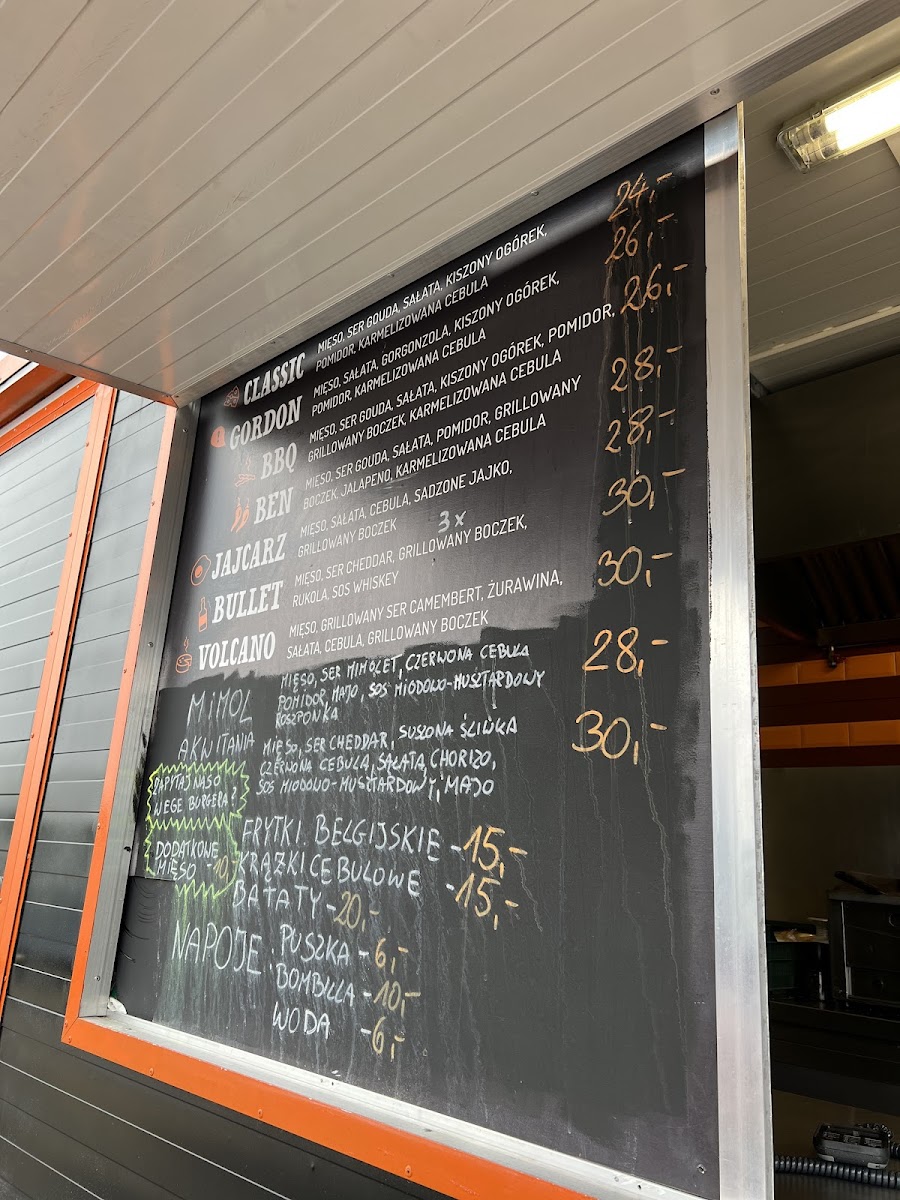 CLASSIC MIĘSO, SER GOUDA, SAŁATA, KISZONY OGÓREK, 24,-
POMIDOR, KARMELIZOWANA CEBULA
GORDON MIĘSO, SAŁATA, GORGONZOLA, KISZONY OGÓREK, 26,-
POMIDOR, KARMELIZOWANA CEBULA
BBQ MIĘSO, SER GOUDA, SAŁATA, KISZONY OGÓREK, POMIDOR, 26,-
GRILLOWANY BOCZEK, KARMELIZOWANA CEBULA
BEN MIĘSO, SER GOUDA, SAŁATA, POMIDOR, GRILLOWANY 28,-
BOCZEK, JALAPENO, KARMELIZOWANA CEBULA
JAJCARZ MIĘSO, SAŁATA, CEBULA, SADZONE JAJKO, 28,-
GRILLOWANY BOCZEK 3x
BULLET MIĘSO, SER CHEDDAR, GRILLOWANY BOCZEK, 30,-
RUKOLA, SOS WHISKEY
VOLCANO MIĘSO, GRILLOWANY SER CAMEMBERT, ŻURAWINA, 30,-
SAŁATA, CEBULA, GRILLOWANY BOCZEK
MIMOL MIĘSO, SER MIMOLET, CZERWONA CEBULA 28,-
POMIDOR MAJO, SOS MIODOWO-MUSZTARDOWY
ROSZPONKA
AKWITANIA MIĘSO, SER CHEDDAR, SUSZONA ŚLIWKA 30,-
CZERWONA CEBULA, SAŁATA, CHORIZO,
SOS MIODOWO-MUSZTARDOWY, MAJO
ZAPYTAJ NAS O
WEGE BURGERA?
DODATKOWE
MIĘSO -10,-
FRYTKI BELGIJSKIE -15,-
KRĄŻKI CEBULOWE -15,-
BATATY -20,-
NAPOJE PUSZKA -6,-
BOMBILLA -10,-
WODA -6,-